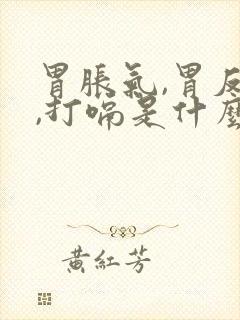 胃脹氣,胃反
,打嗝是什麼
黃紅芳